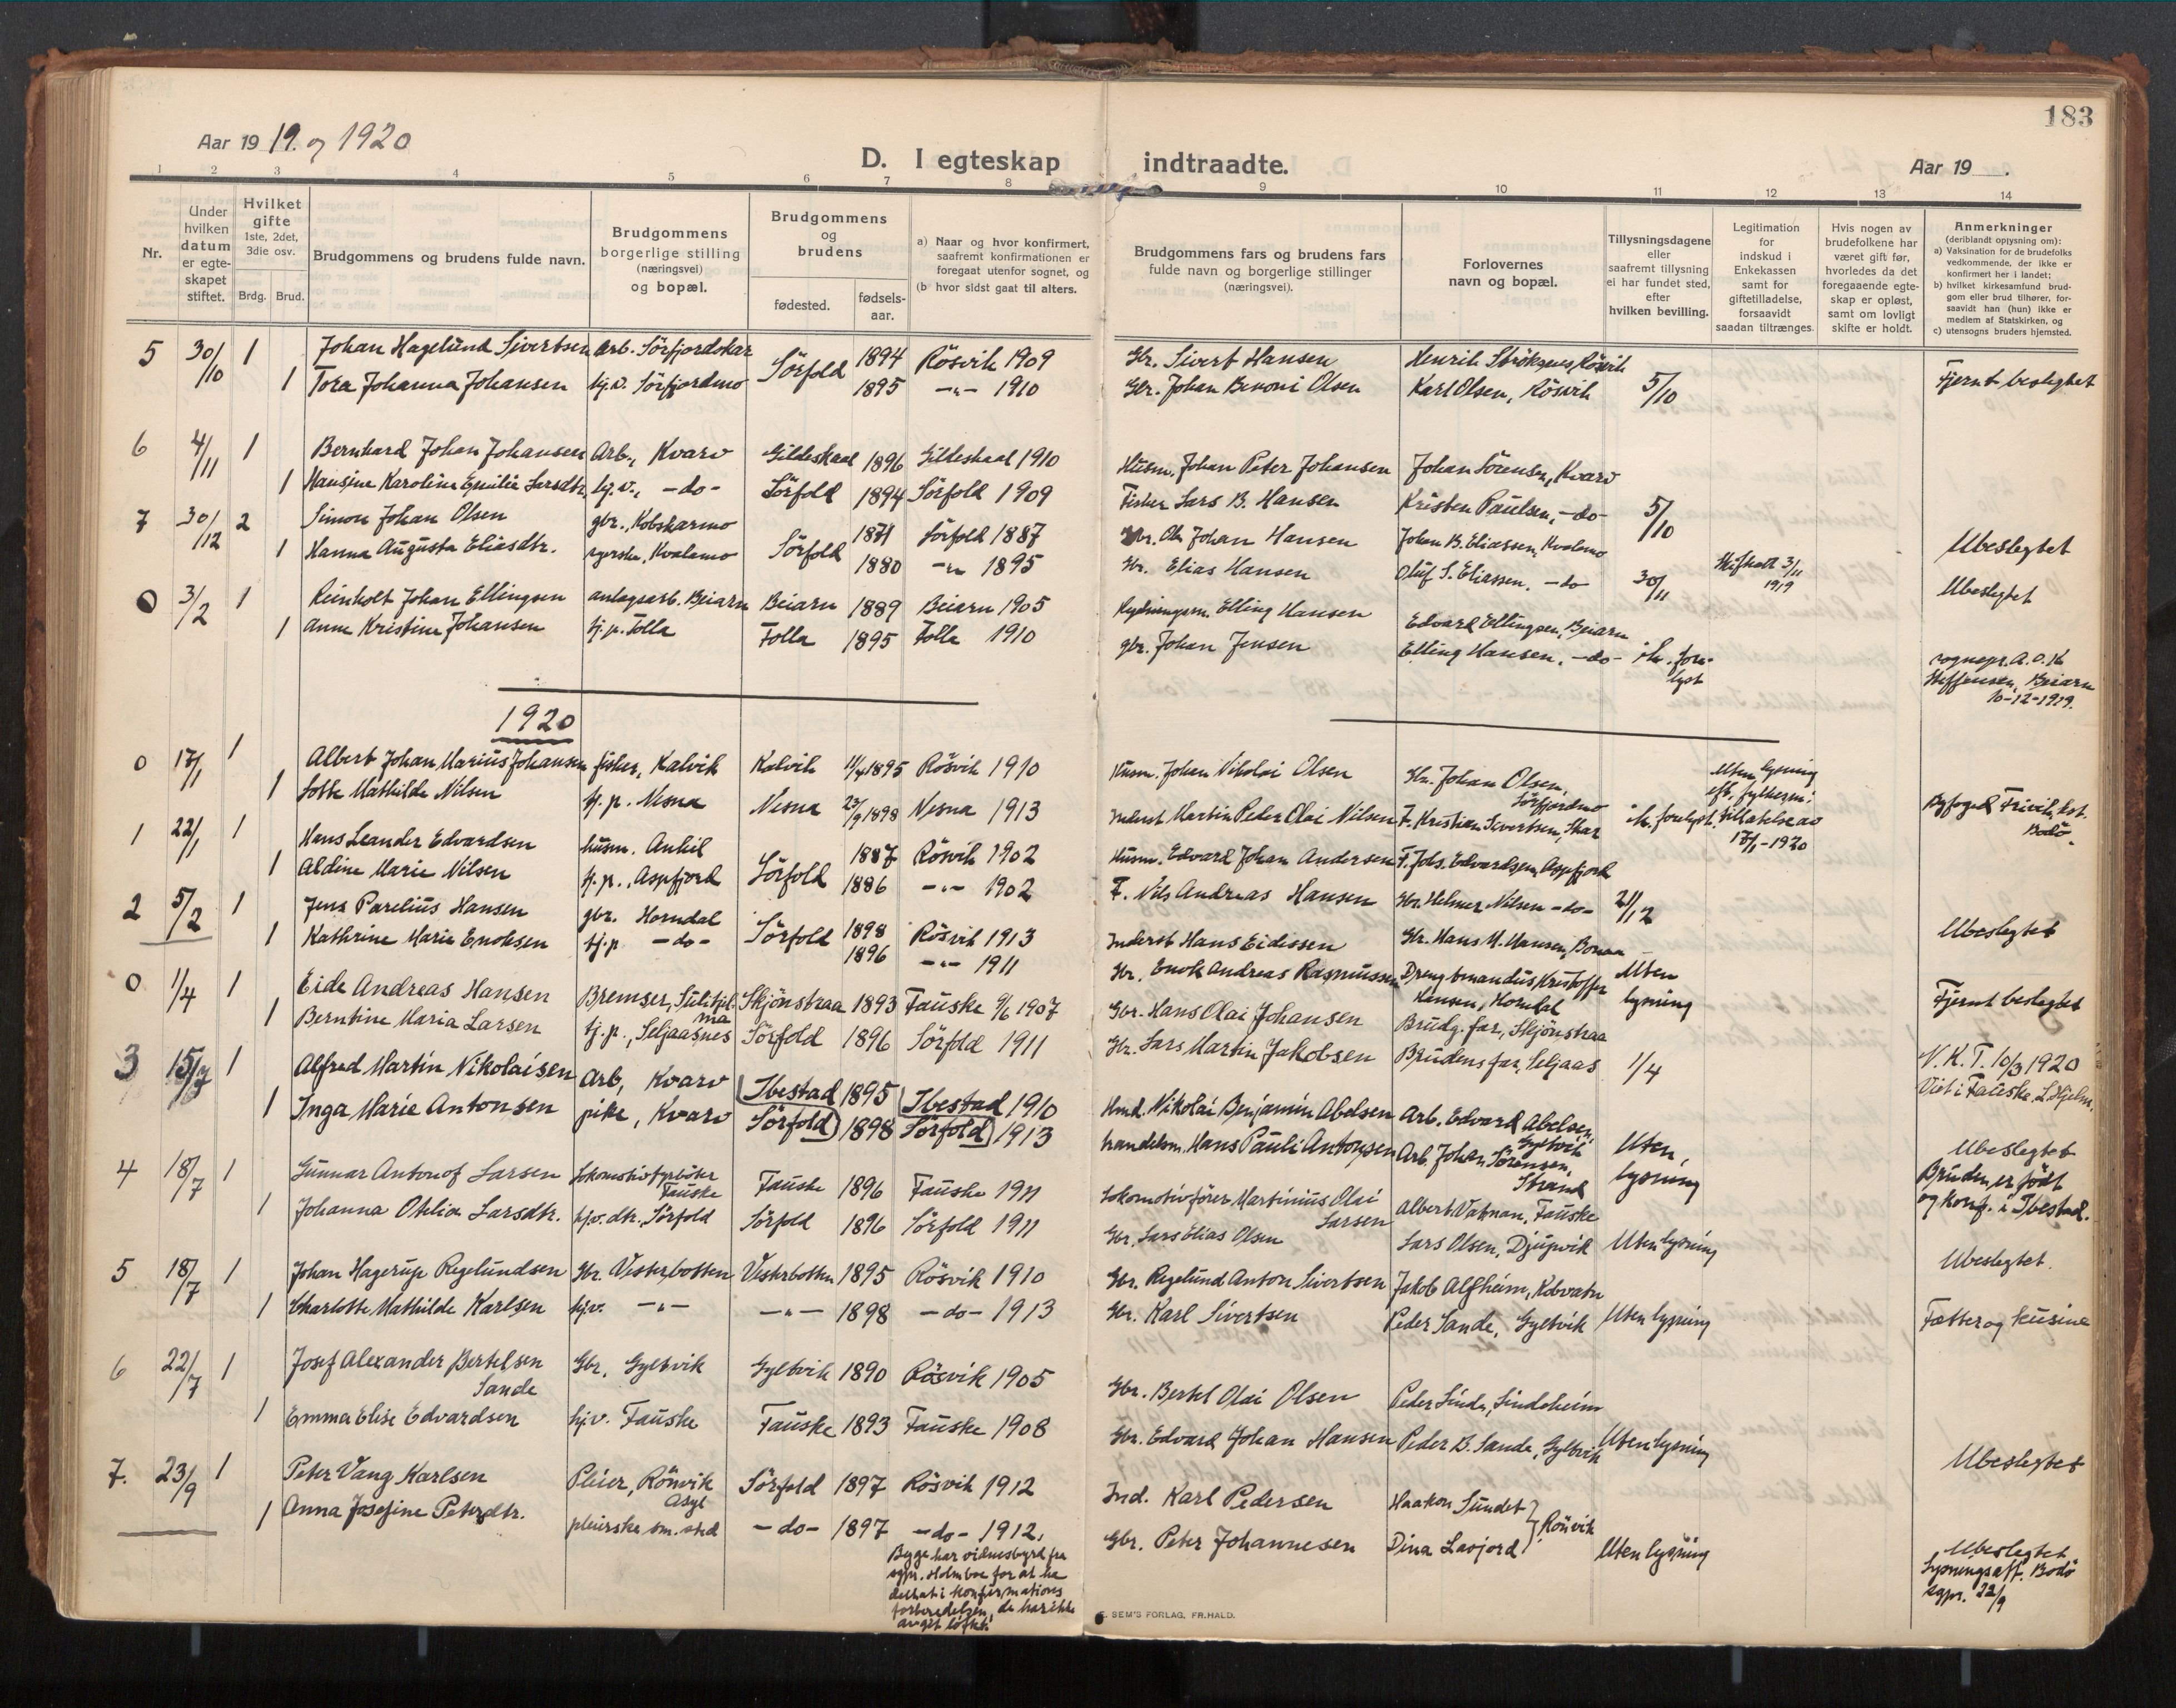 183
Aar 1919. og 1920
D. I egteskap indtraadte.
Aar 19 .
1 2 3 4 5 6 7 8 9 10 11 12 13 14
Nr.
Under hvilken datum er egteskapet stiftet.
Hvilket gifte
1ste, 2det, 3die osv.
Brdg. Brud.
Brudgommens og brudens fulde navn.
Brudgommens borgerlige stilling (næringsvei) og bopæl.
Brudgommens og brudens
fødested. fødsels-aar.
a) Naar og hvor konfirmert, saafremt konfirmationen er foregaat utenfor sognet, og
(b hvor sidst gaat til alters.
Brudgommens fars og brudens fars fulde navn og borgerlige stillinger (næringsvei).
Forlovernes navn og bopæl.
Tillysningsdagene eller saafremt tillysning ei har fundet sted, efter hvilken bevilling.
Legitimation for indskud i Enkekassen samt for giftetilladelse, forsaavidt saadan tiltrænges.
Hvis nogen av brudefolkene har været gift før, hvorledes da det foregaaende egteskap er opløst, samt om lovligt skifte er holdt.
Anmerkninger
(deriblandt oplysning om):
a) Vaksination for de brudefolks vedkommende, der ikke er konfirmert her i landet;
b) hvilket kirkesamfund brudgom eller brud tilhører, forsaavidt han (hun) ikke er medlem af Statskirken, og
c) utensogns bruders hjemsted.
5 30/10 1 Johan Hagelund Sivertsen Arb. Sörfjordskar Sörfold 1894 Rösvik 1909 Gbr. Sivert Hansen Henrik Ströksnes, Rösvik
1 Tora Johanna Johansen hj.v. Sörfjordmo 1895 -"- 1910 Gbr. Johan Benoni Olsen Karl Olsen, Rösvik 5/10 Fjernt beslegtet
6 4/11 1 Bernhard Johan Johansen Arb., Kvarv Gildeskaal 1896 Gildeskaal 1910 Husm. Johan Peter Johansen Johan Sörensen, Kvarv
1 Hansine Karoline Emilie Larsdtr. hj.v., -do- Sörfold 1894 Sörfold 1909 Fisker Lars B. Hansen Kristen Paulsen, -do- 5/10 Ubeslegtet
7 30/12 2 Simon Johan Olsen gbr., Kobskarmo Sörfold 1871 Sörfold 1887 Gbr. Ole Johan Hansen Johan B. Eliassen, Kvalamo
1 Hanna Augusta Eliasdtr. syerske, Kvalamo 1880 -"- 1895 Gbr. Elias Hansen Oluf S. Eliassen, -do- 30/11 Skifteatt 3/11 1919 Ubeslegtet
0 3/2 1 Reinholt Johan Ellingsen anlagsarb. Beiarn Beiarn 1889 Beiarn 1905 Rydningsm. Elling Hansen Edvard Ellingsen, Beiarn
1 Anne Kristine Johansen tj.p. Folla Folla 1895 Folla 1910 gbr. Johan Jensen Elling Hansen, -do- ik. forelyst
sognepr. A. O. K. Steffensen, Beiarn 10-12-1919.
1920
0 17/1 1 Albert Johan Marius Johansen fisker, Kalvik Kalvik 11/4 1895 Rösvik 1910 Husm. Johan Nikolai Olsen Gbr. Johan Olsen, Sörfjordmo
1 Lotte Mathilde Nilsen tj.p. Nesna Nesna 23/9 1898 Nesna 1913 Inderst Martin Peder Olai Nilsen F. Kristian Sivertsen, Skar ik. forelyst.
Uten lysning eft. fylkesm. tillatelse av 17/1-1920
Byfoged Bodö.
1 22/1 1 Hans Leander Edvardsen husm. Ankil Sörfold 1887 Rösvik 1902 Husm. Edvard Johan Andersen F. Johs. Edvardsen, Aspfjord
1 Aldine Marie Nilsen tj.p., Aspfjord 1886 -"- 1902 F. Nils Andreas Hansen Gbr. Helmer Nilsen -do- 21/12 Ubeslegtet
2 5/2 1 Jens Parelius Hansen gbr. Horndal Sörfold 1898 Rösvik 1913 Inderst Hans Eidissen Gbr. Hans M. Hansen, Bonaa
1 Kathrine Marie Enoksen tj.p -do- 1896 -"- 1911 Gbr. Enok Andreas Rasmussen Dreng Kristoffer Hansen, Horndal Uten lysning Fjernt beslegtet
0 1/4 1 Eide Andreas Hansen Bremser, Sulitjelma Skjönstraa 1893 Fauske 9/6 1907 Gbr. Hans Olai Johansen Brudg. far, Skjönstraa
1 Berntine Maria Larsen tj.p., Seljaasnes Sörfold 1896 Sörfold 1911 Gbr. Lars Martin Jakobsen Brudens far, Seljaas 1/4 N.K.T. 10/3 1920
Viet i Fauske, L. Hjelm.
3 15/7 1 Alfred Martin Nikolaisen Arb, Kvarv Ibestad 1895 Ibestad 1910 Hmd. Nikolai Benjamin Abelsen Arb. Edvard Abelsen, Gyltvik
1 Inga Marie Antonsen pike, Kvarv Sörfold 1898 Sörfold 1913 handelsm. Hans Pauli Antonsen Arb. Johan Sörensen, Strand Uten lysning
Ubeslegtet
Bruden er født og konf. i Ibestad.
4 18/7 1 Gunnar Antonof Larsen Lokomotivfyrböter Fauske Fauske 1896 Fauske 1911 Lokomotivförer Martinius Olai Larsen Albert Vatnan, Fauske
1 Johanna Otelia Larsdtr. hjv. dtr. Sörfold Sörfold 1896 Sörfold 1911 Gbr. Lars Elias Olsen Lars Olsen, Djupvik Uten lysning Ubeslegtet.
5 18/7 1 Johan Hagerup Regelundsen Gbr. Vesterbotten Vesterbotten 1895 Rösvik 1910 Gbr. Regelund Anton Sivertsen Jakob Alfheim, Kobvatn
1 Charlotte Mathilde Karlsen hjv. -"- -"- 1898 -do- 1913 Gbr. Karl Sivertsen Peder Sande, Gyltvik Uten lysning Fætter og kusine
6 22/7 1 Josef Alexander Bertelsen Sande Gbr. Gyltvik Gyltvik 1890 Rösvik 1905 Gbr. Bertel Olai Olsen Peder Linder, Lindeheim
1 Emma Elise Edvardsen hjv. Fauske Fauske 1893 Fauske 1908 Gbr. Edvard Johan Hansen Peder B. Sande, Gyltvik Uten lysning Ubeslegtet
7. 23/9 1 Peter Vang Karlsen Pleier, Rönvik asyl Sörfold 1897 Rösvik 1912 Ind. Karl Pedersen Haakon Sundet } Rönvik
1 Anna Josefine Petersdtr. pleierske sm. sted -do- 1897 -do- 1912. Gbr. Peter Johannesen Dina Lavjord Uten lysning
Ubeslegtet
Lysningsatt. Bodö sgpr. 22/9
Begge har vidnesbyrd fra sgpr. Holmboe for at ha deltat i konfirmations forberedelsen, de har ikke avgit löftet.
E. SEM'S FORLAG, FR.HALD.